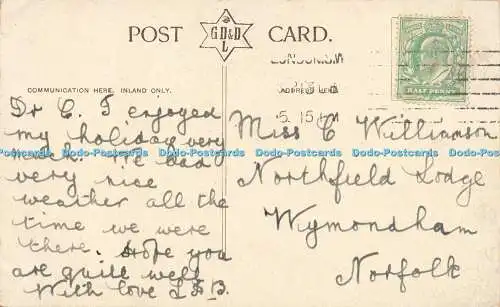 POST CARD.
G D & D
L
HALF PENNY
COMMUNICATION HERE, INLAND ONLY.
ADDRESS
LONDON. S.W
5. 15 PM
Dr C. I enjoyed
my holiday very
much. We had
very nice
weather all the
time we were
there. Hope you
are quite well
With love L F B.
Miss C Williamson
Northfield Lodge
Wymondham
Norfolk
Dodo-Postcards Dodo-Postcards Dodo-Postcards Dodo-Postcards Dodo-Postcards Dodo-Postcards